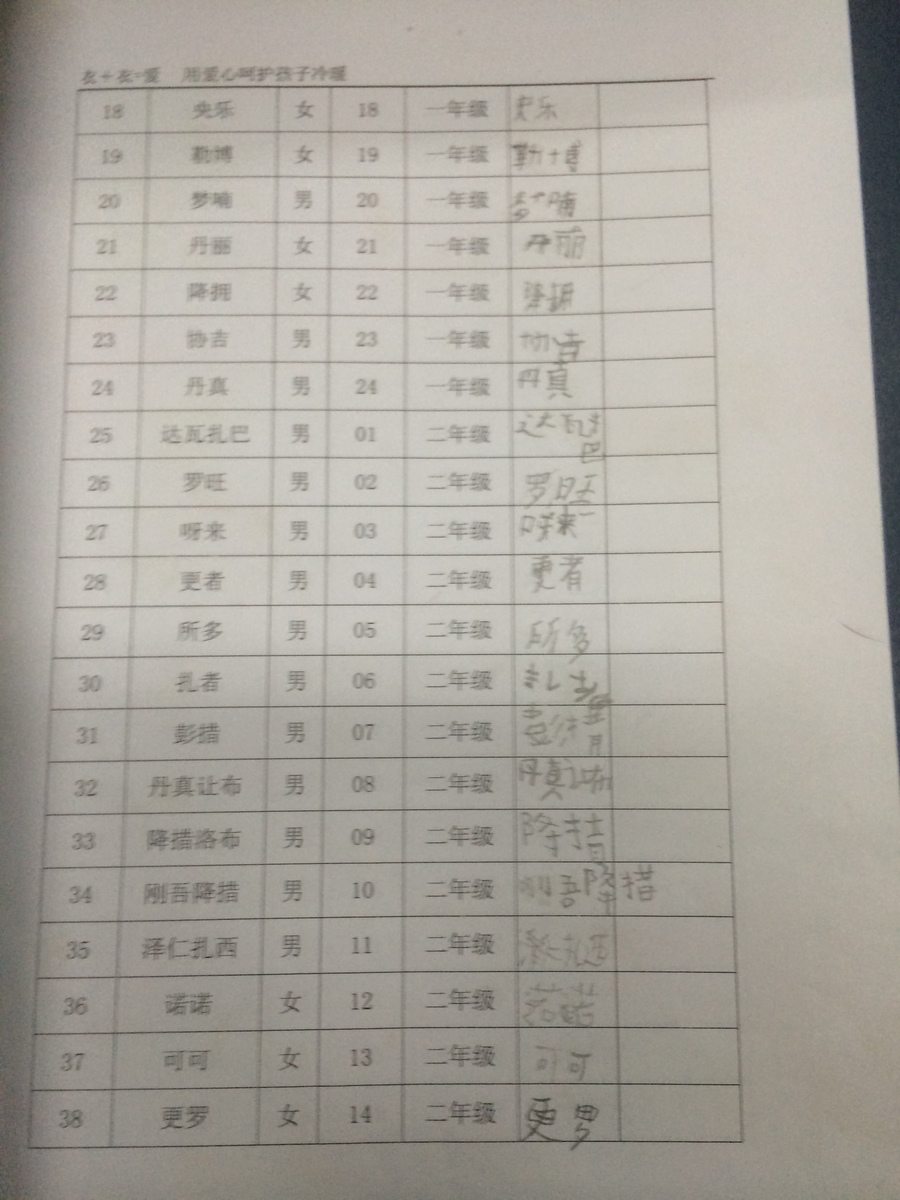 衣+衣=爱 用爱心呵护孩子冷暖
18 央乐 女 18 一年级 央乐
19 勒博 女 19 一年级 勒博
20 梦喃 男 20 一年级
21 丹丽 女 21 一年级 丹丽
22 降拥 女 22 一年级 降拥
23 协吉 男 23 一年级 协吉
24 丹真 男 24 一年级 丹真
25 达瓦扎巴 男 01 二年级 达瓦扎巴
26 罗旺 男 02 二年级 罗旺
27 呀来 男 03 二年级 呀来
28 更者 男 04 二年级 更者
29 所多 男 05 二年级 所多
30 扎者 男 06 二年级 扎者
31 彭措 男 07 二年级
32 丹真让布 男 08 二年级 丹真让布
33 降措洛布 男 09 二年级 降措
34 刚吾降措 男 10 二年级 刚吾降措
35 泽仁扎西 男 11 二年级 泽仁扎西
36 诺诺 女 12 二年级 诺诺
37 可可 女 13 二年级 可可
38 更罗 女 14 二年级 更罗